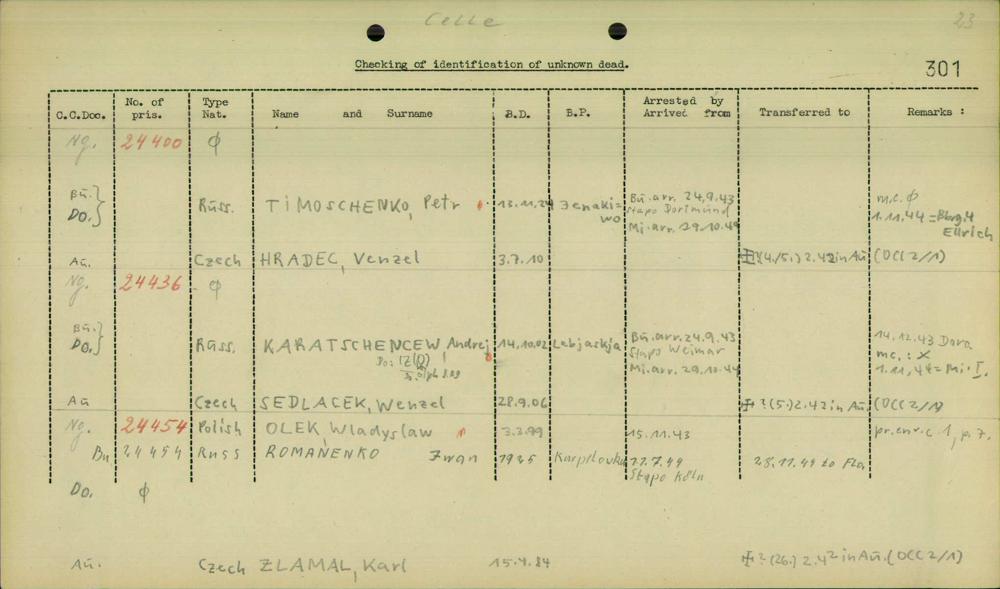 Celle
23
Checking of identification of unknown dead.
301
C.C.Doc. No. of pris. Type Nat. Name and Surname B.D. B.P. Arrested by Arrived from Transferred to Remarks :
Ng. 24400 ϕ
Bu. } Do. Russ. TIMOSCHENKO, Petr 13.11.24 Jenaki=wo Bu. arr. 24.9.43 m.c. ϕ
Stapo Dortmund 1.11.44 =
Mi. arr. 29.10.44 Ellrich
Au. Czech HRADEC, Venzel 3.7.10 (4./5.) 2.42 in Au. (OCC 2/1)
Ng. 24436 ϕ
Bu. } Do. Russ. KARATSCHENCEW, Andrej 14.10.02 Lebjaskja Bu. arr. 24.9.43 14.12.43 Dora
Stapo Weimar mc. : X
Mi. arr. 29.10.44 1.11.44 = Mi. I.
Au Czech SEDLACEK, Wenzel 28.9.06 ? (5.) 2.42 in Au. (OCC 2/1)
Ng. 24454 Polish OLEK, Wladyslaw 3.2.99 15.11.43 pr.env.c 1, p.7.
Bu 24454 Russ ROMANENKO Iwan 1925 Karpilowka 28.11.44 to Flo.
Stapo Köln
Do. ϕ
Au. Czech ZLAMAL, Karl 15.4.84 ? (26.) 2.42 in Au. (OCC 2/1)